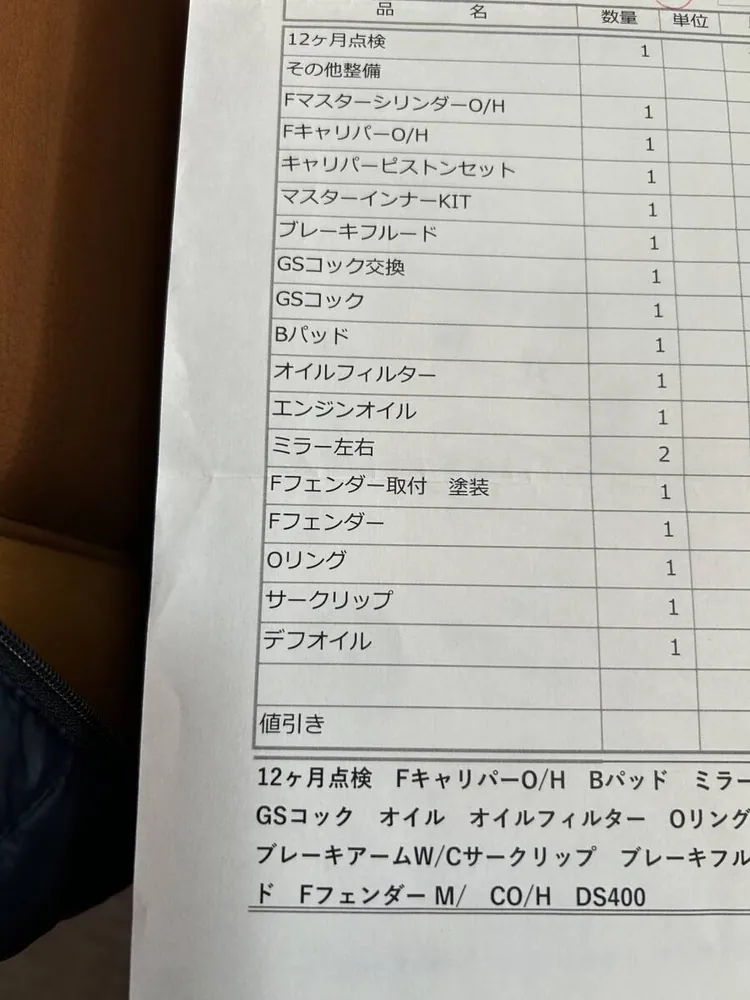 品 名 数量 単位
12ヶ月点検 1
その他整備
FマスターシリンダーO/H 1
FキャリパーO/H 1
キャリパーピストンセット 1
マスターインナーKIT 1
ブレーキフルード 1
GSコック交換 1
GSコック 1
Bパッド 1
オイルフィルター 1
エンジンオイル 1
ミラー左右 2
Fフェンダー取付 塗装 1
Fフェンダー 1
Oリング 1
サークリップ 1
デフオイル 1
値引き
12ヶ月点検 FキャリパーO/H Bパッド ミラー
GSコック オイル オイルフィルター Oリング
ブレーキアームW/Cサークリップ ブレーキフル
ド Fフェンダー M/ CO/H DS400